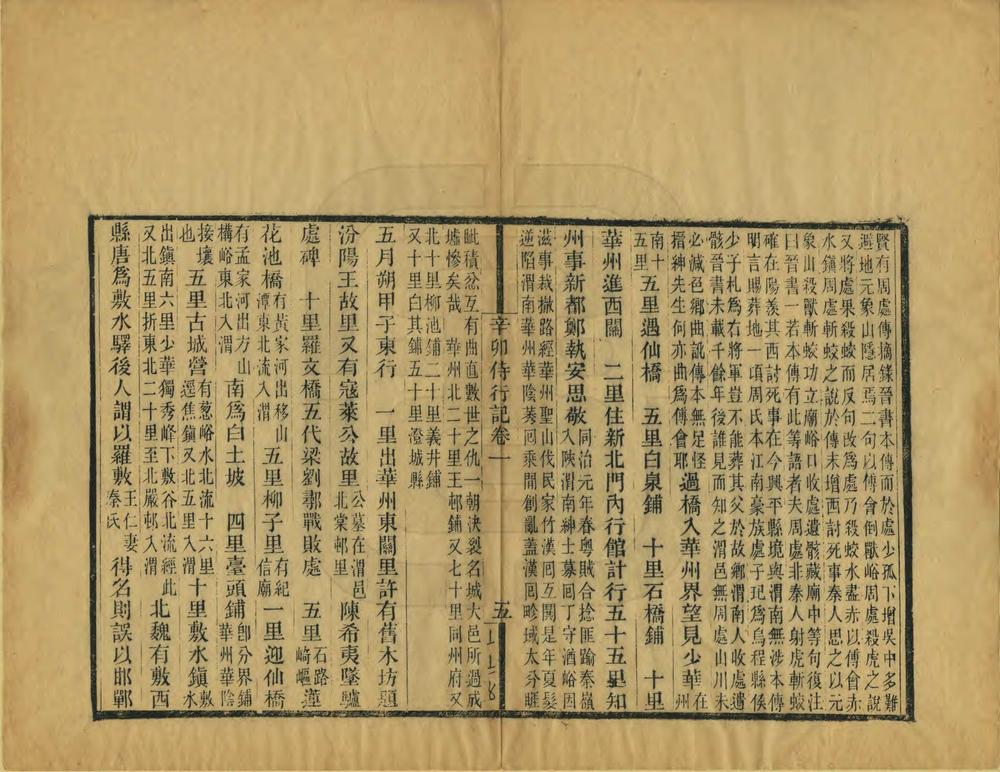 賢有周處傳摘錄晉書本傳而於處少孤下增吳中多難
避地元象山隱居焉二句以傅會倒獸峪周處殺虎之說
又將處果殺蛟而反句改爲處乃殺蛟水盡赤以傅會赤
水鎮周處斬蛟之說於傳未增西討死事秦人思之以元
象山殺獸斬蛟功立廟峪口收處遺骸藏廟中等句復注
曰晉書一若本傳有此等語者夫周處非秦人射虎斬蛟
確在陽羨其西討死事在今興平縣境與渭南無涉本傳
明言賜葬地一頃周氏本江南豪族處子玘爲烏程縣侯
少子札爲右將軍豈不能葬其父於故鄉渭南人收處遺
骸晉書未載千餘年後誰見而知之渭邑無周處山川未
必減色鄉曲訛傳本無足怪
搢紳先生何亦曲爲傅會耶
過橋入華州界望見少華在州
南十五里
五里遇仙橋 五里白泉鋪 十里石橋鋪 十里
華州進西關 二里住新北門內行館計行五十五里知
州事新都鄭執安思敬
同治元年春粵賊合捻匪踰秦嶺
入陝渭南紳士募囘丁守湑峪因
滋事裁撤路經華州聖山伐民家竹漢囘互鬨是年夏髮
逆陷渭南華州華陰莠囘乘間創亂蓋漢囘畛域太分睚
眦積忿互有曲直數世之仇一朝決裂名城大邑所過成
墟慘矣哉 華州北二十里王邨鋪又七十里同州府又
北十里柳池鋪二十里義井鋪
又十里白其鋪五十里澄城縣
五月朔甲子東行 一里出華州東關里許有舊木坊題
汾陽王故里又有寇萊公故里
公墓在渭邑
北棠邨里
陳希夷墜驢
處碑 十里羅文橋五代梁劉鄩戰敗處 五里
石路
崎嶇
蓮
花池橋
有黃家河出移山
潭東北流入渭
五里柳子里
有紀
信廟
一里迎仙橋
有孟家河出方山
構峪東北入渭
南爲白土坡 四里臺頭鋪
卽分界鋪
華州華陰
接壤
也
五里古城營
有葱峪水北流十六里
逕焦鎮又北五里入渭
十里敷水鎮
敷
水
出鎮南六里少華獨秀峰下敷谷北流經此
又北五里折東北二十里至北嚴邨入渭
北魏有敷西
縣唐爲敷水驛後人謂以羅敷
王仁妻
秦氏
得名則誤以邯鄲
辛卯侍行記卷一
五